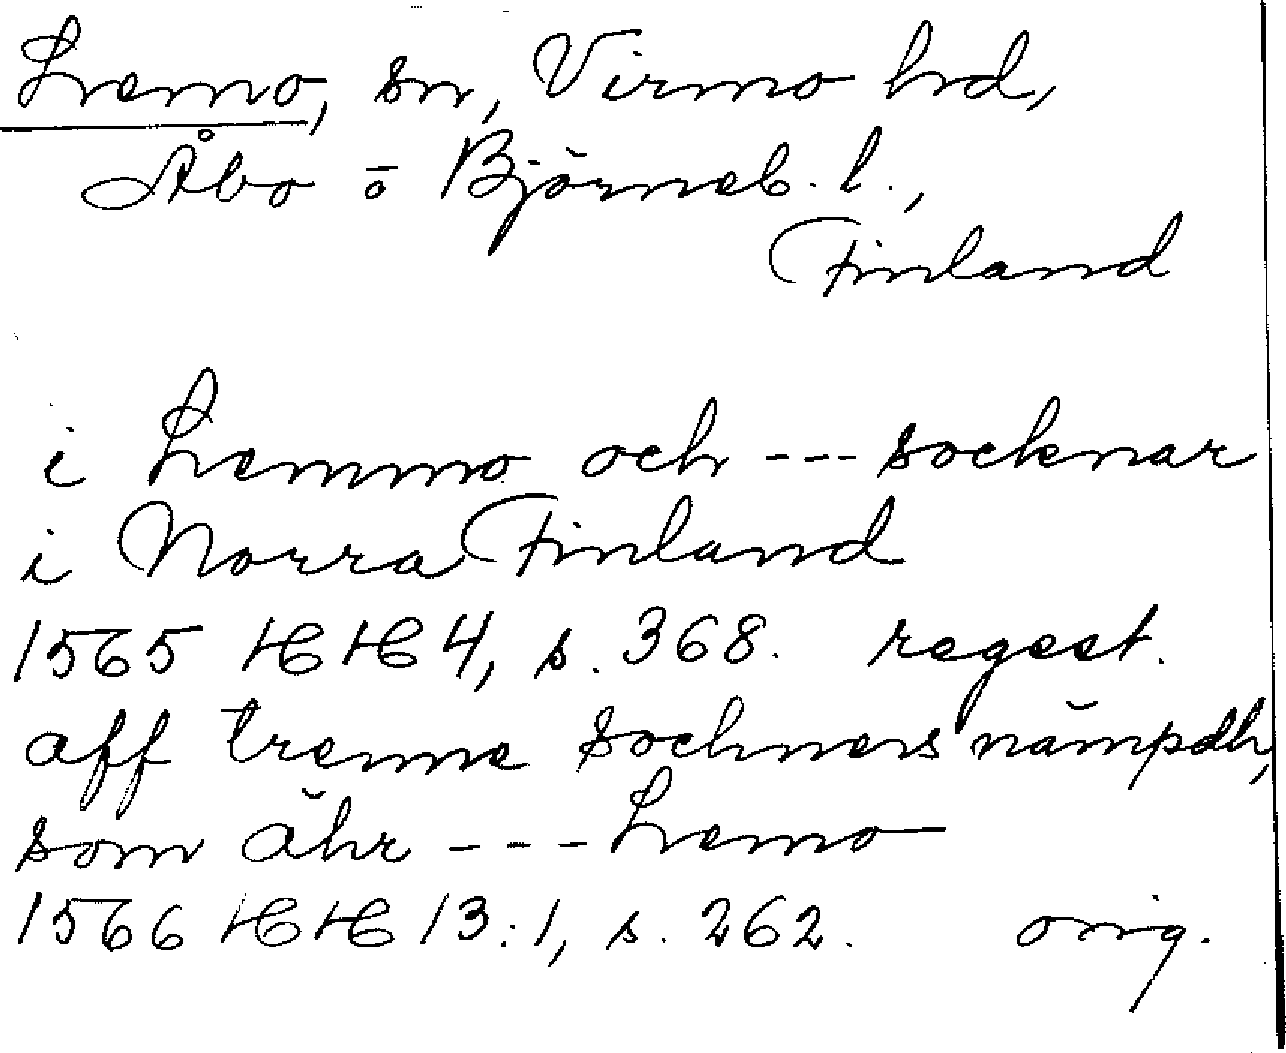 Lemo, sn, Virmo hd,
Åbo o Björneb. l.,
Finland
i Lemmo och --- socknar
i Norra Finland
1565 HH 4, s. 368. regest.
aff trenne sochners nämpdh,
som ähr --- Lemo
1566 HH 13:1, s. 262. orig.